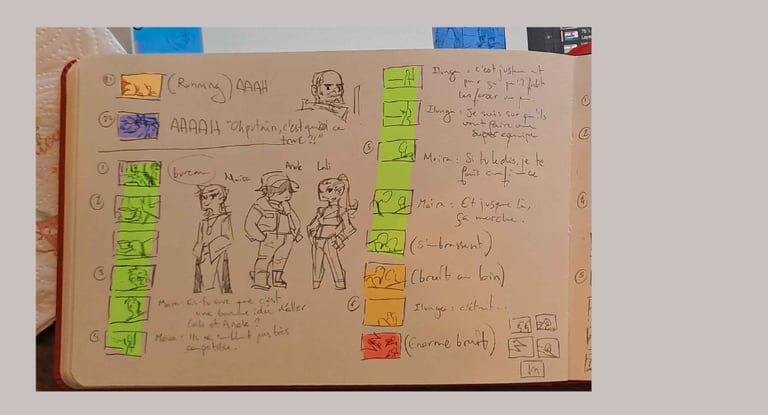 (Running) AAAH
AAAAH "Oh putain, c'est quoi ce
truc ?!"
1
bureau
Moira
Anok
Lali
2
3
Moira : Es-tu sure que c'est
une bonne idée d'allier
Lali et Anok ?
4
Moira : Ils ne semblent pas très
compatible.
Ilunga : c'est justement
pour ça qu'il faut
les forcer un peu
Ilunga : Je suis sur qu'ils
vont faire une
super equipe
5
Moira : Si tu le dis, je te
fais confiance
Moira : Et jusque là,
ça marche.
(S'embrassent)
(bruit au loin)
6
Ilunga : c'était...
(Enorme bruit)